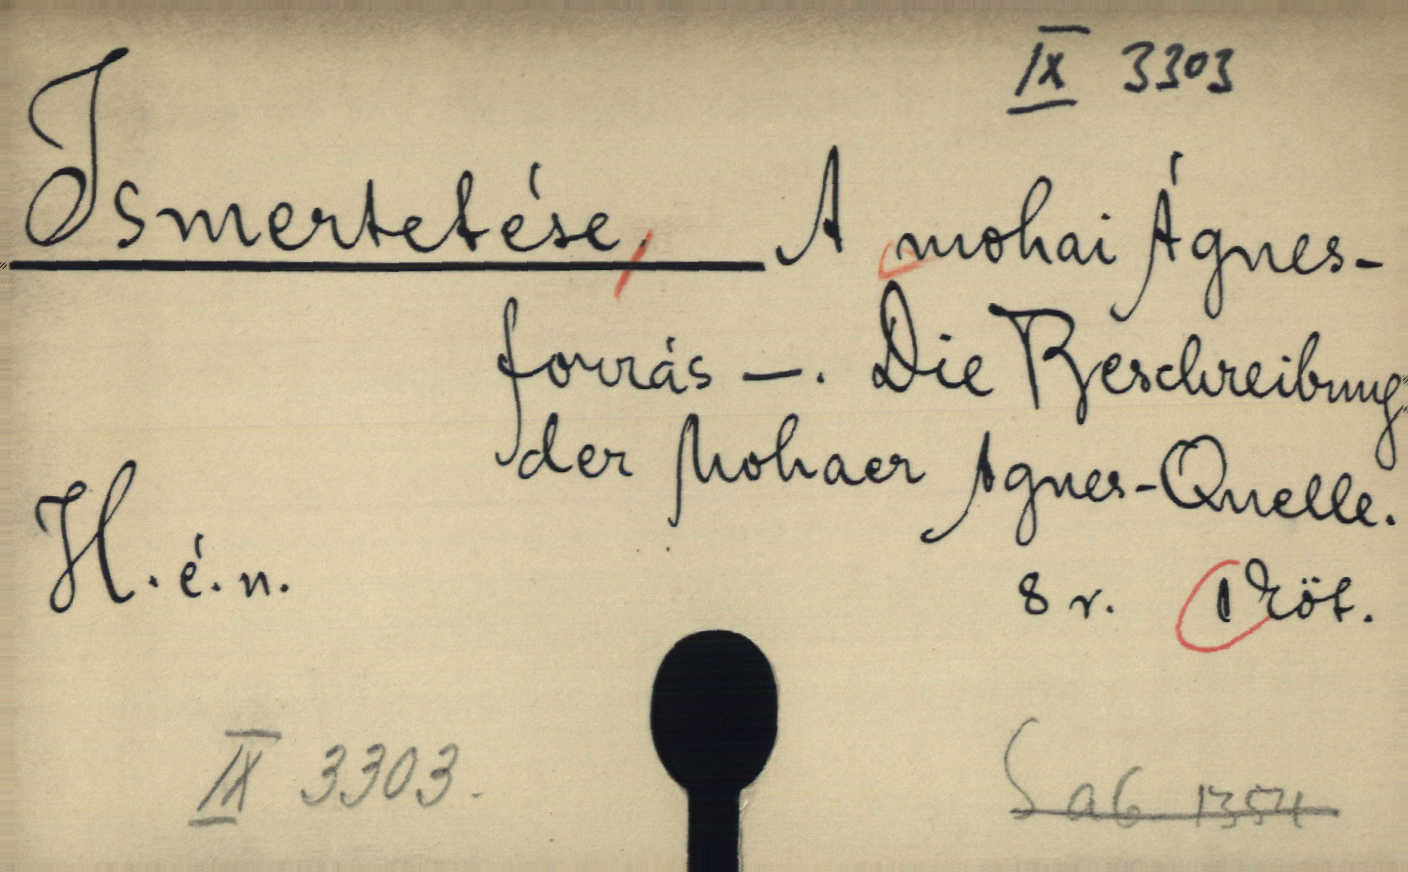 IX 3303
Ismertetése, A mohai Ágnes-
forrás —. Die Beschreibung
der Mohaer Agnes-Quelle.
H. é. n.
8 r. 1 Köt.
IX 3303.
Sab 1354